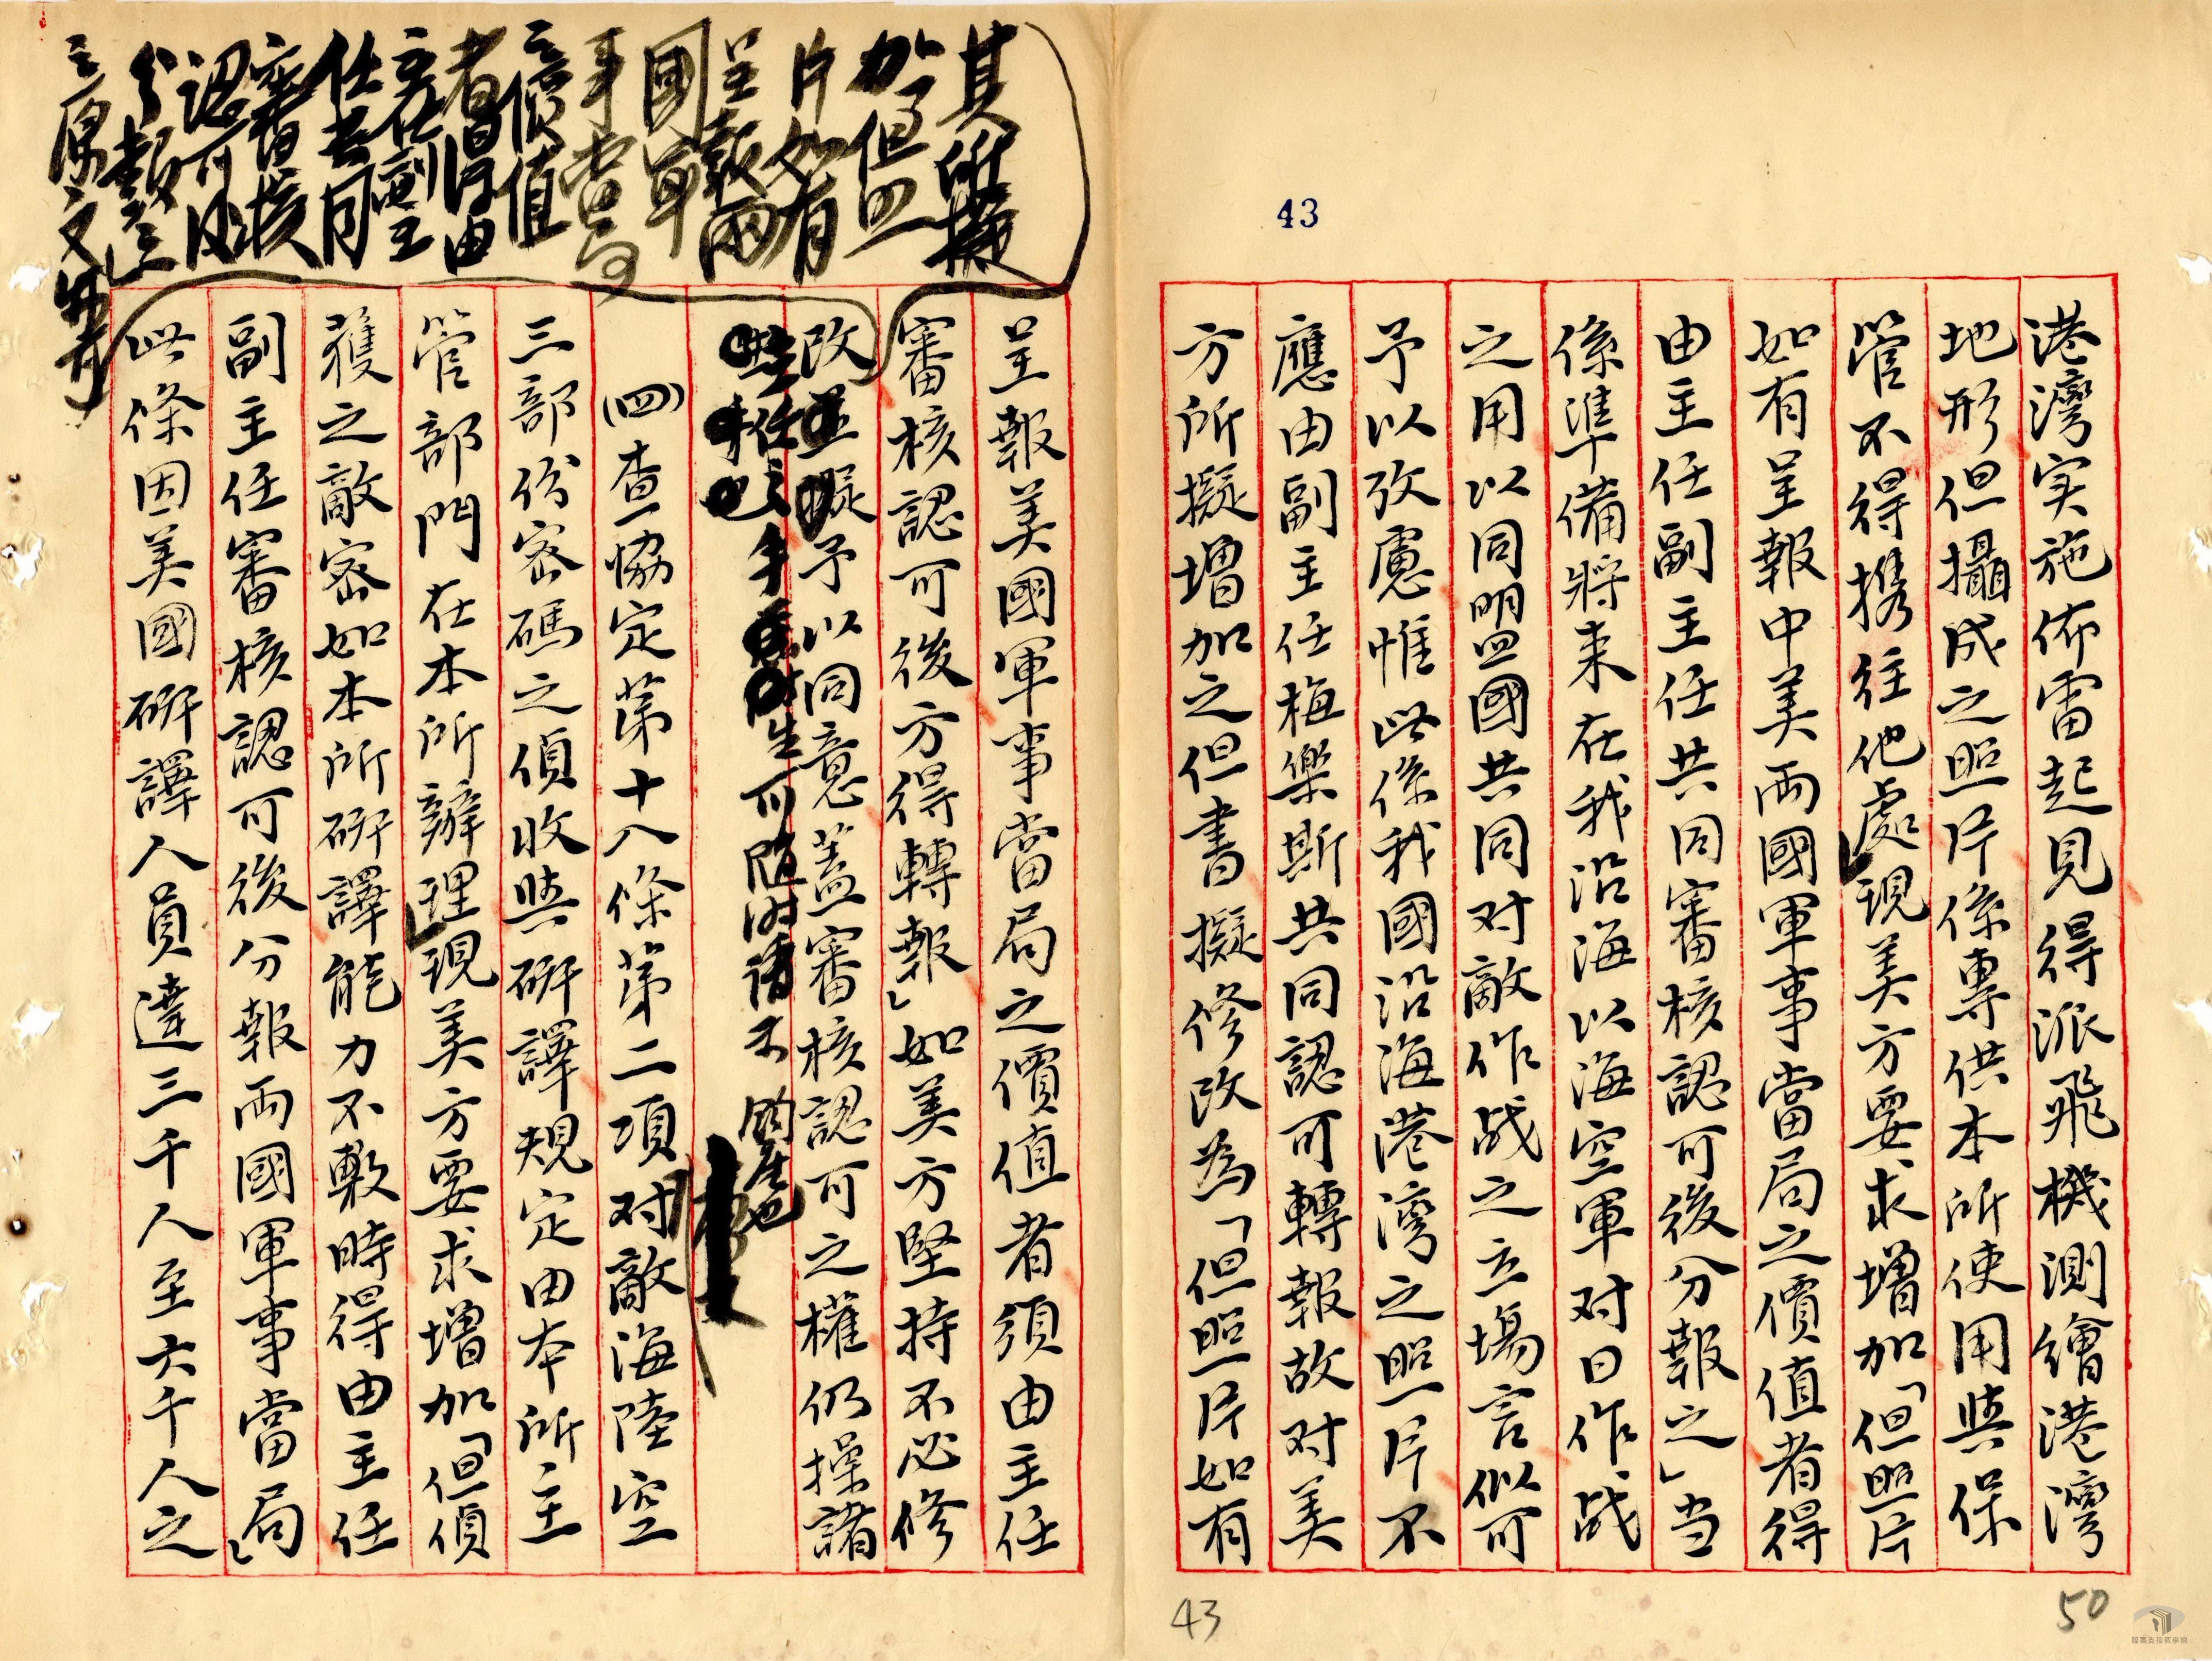 43
港灣实施佈雷起見得派飛機測繪港灣
地形但攝成之照片係專供本所使用與保
管不得携往他處」現美方要求增加「但照片
如有呈報中美兩國軍事當局之價值者得
由主任副主任共同審核認可後分報之」当
係準備將来在我沿海以海空軍对日作战
之用以同盟國共同对敵作战之立場言似可
予以攷慮惟此係我國沿海港灣之照片不
應由副主任梅樂斯共同認可轉報故对美
方所擬增加之但書擬修改為「但照片如有
呈報美國軍事當局之價值者須由主任
審核認可後方得轉報」如美方堅持不必修
改並擬予以同意蓋審核認可之權仍操諸
手生可隨时請不的產也
㈣查協定第十八條第二項对敵海陸空
三部份密碼之偵收與研譯規定由本所主
管部門在本所辦理」現美方要求增加「但偵
獲之敵密如本所研譯能力不敷時得由主任
副主任審核認可後分報兩國軍事當局」
此條因美國研譯人員達三千人至六千人之
其所擬
加了但照
片如有
呈報兩
國軍
事當局
之價值
者得由
主任副主
任共同
審核
認可後
分報之
之原文如有
43
50